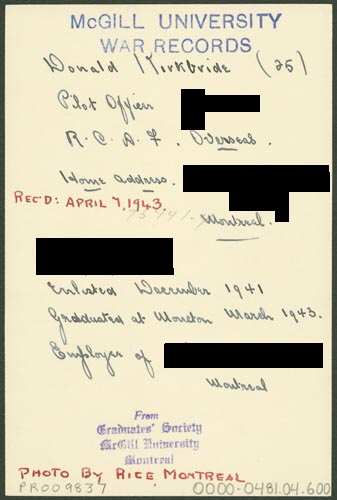 McGILL UNIVERSITY
WAR RECORDS
Donald Kirkbride (25)
Pilot Officer
R.C.A.F. Overseas.
Home address.
REC'D: APRIL 7, 1943.
Montreal.
Enlisted December 1941
Graduated at Moncton March 1943.
Employee of
Montreal
From
Graduates' Society
McGill University
Montreal
PHOTO BY RICE MONTREAL
PR009837 0000-0481.04.600